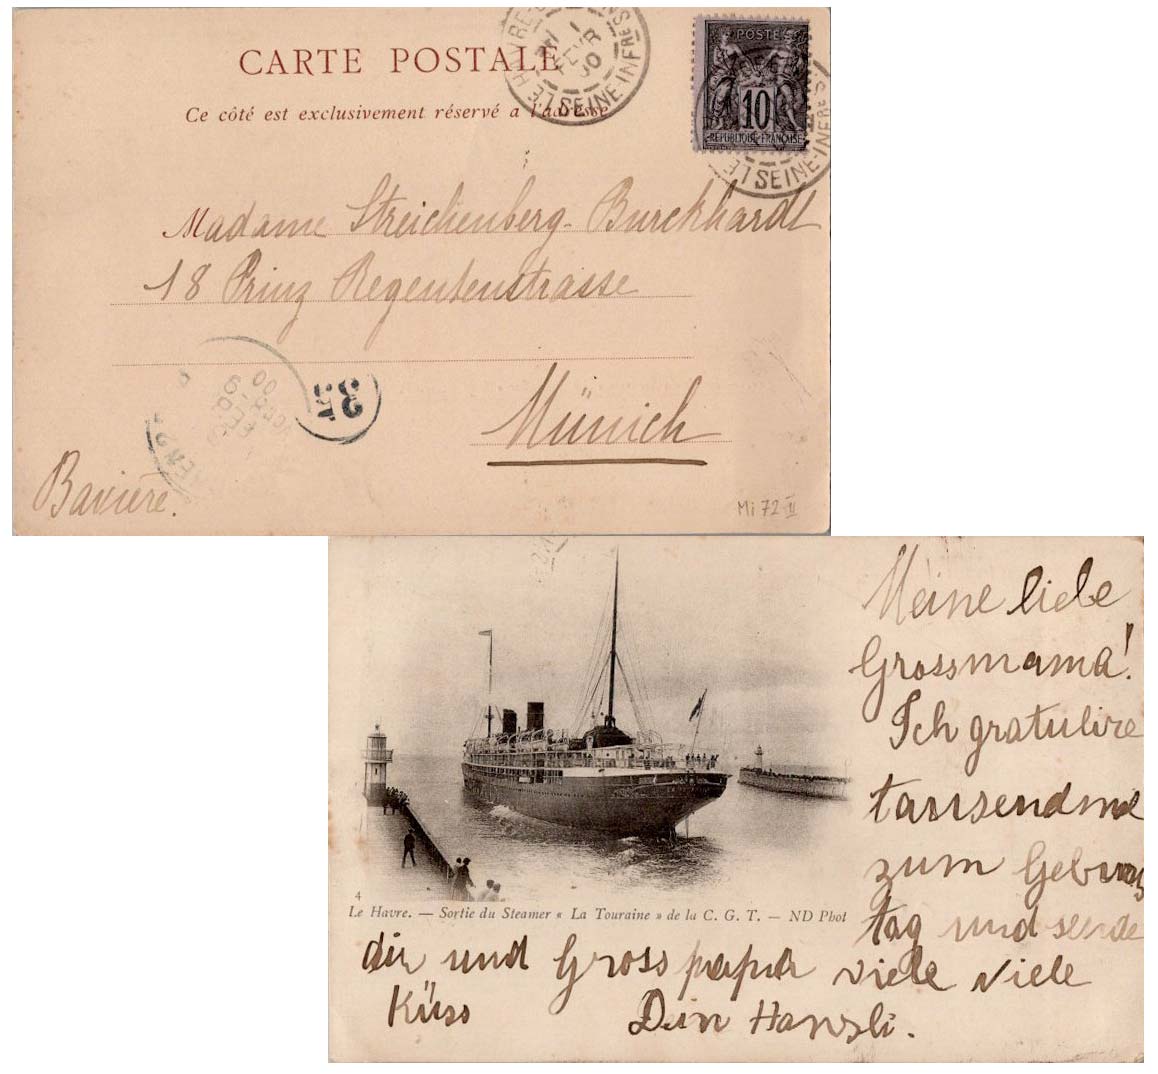 CARTE POSTALE
Ce côté est exclusivement réservé a l'adresse
LE HAVRE
1
FEVR
00
SEINE-INFRE
POSTE
10
REPUBLIQUE FRANÇAISE
LE SEINE-INFRE
Madame Streichenberg-Burckhardt
18 Prinz Regentenstrasse
Münich
Bavière.
32
FEB
8-9
00
Mi 72 II
Meine liebe
Grossmama!
Ich gratulire
taussendmal
zum Geburts
tag und sende
dir und Grosspapa viele viele
Küss Dein Hansli.
4
Le Havre. — Sortie du Steamer « La Touraine » de la C. G. T. — ND Phot